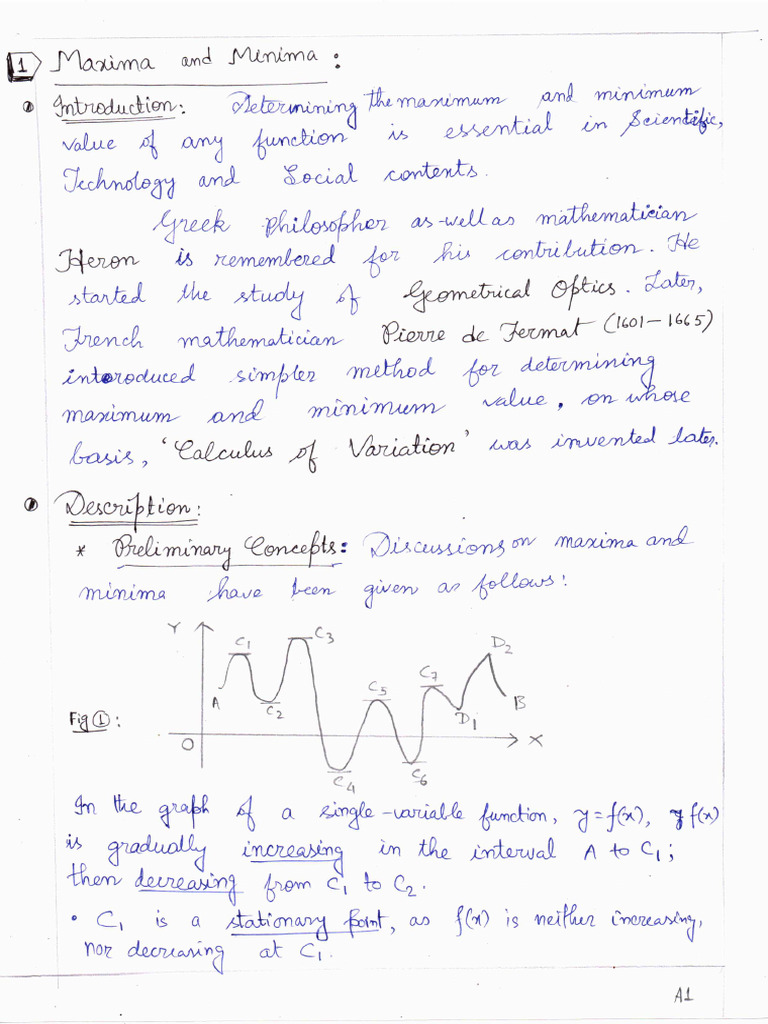 1 Maxima and Minima :
Introduction: Determining the maximum and minimum
value of any function is essential in Scientific,
Technology and Social contents.
Greek philosopher as-well as mathematician
Heron is remembered for his contribution. He
started the study of Geometrical Optics. Later,
French mathematician Pierre de Fermat (1601-1665)
introduced simpler method for determining
maximum and minimum value, on whose
basis, 'Calculus of Variation' was invented later.
Description:
* Preliminary Concepts: Discussions on maxima and
minima have been given as follows:
Y
C1
C3
D2
C7
C5
A
C2
B
D1
Fig ①:
O
X
C4
C6
In the graph of a single-variable function, y=f(x), f(x)
is gradually increasing in the interval A to C1;
then decreasing from C1 to C2.
• C1 is a stationary point, as f(x) is neither increasing,
nor decreasing at C1.
A1